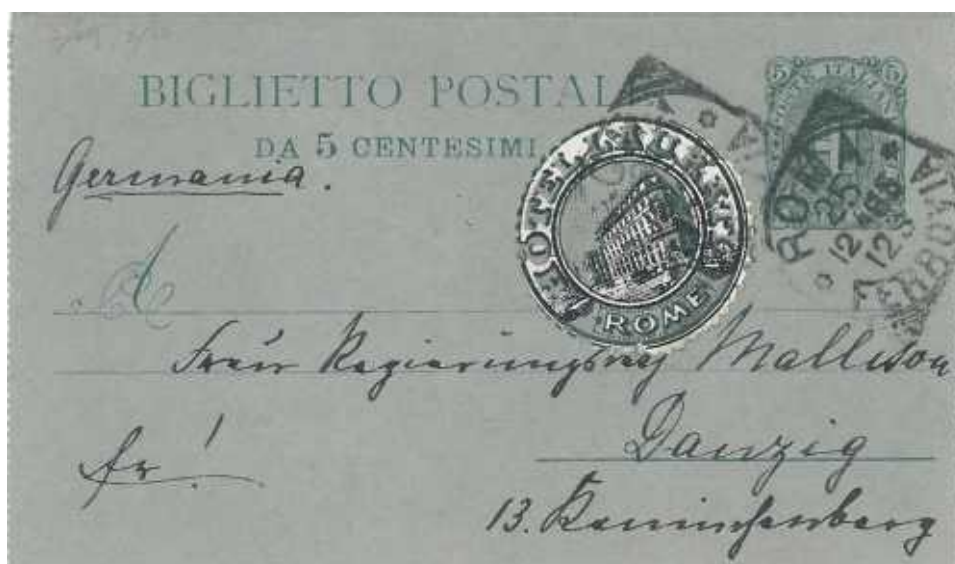 BIGLIETTO POSTALE
DA 5 CENTESIMI
5 POSTE ITALIANE 5
Germania.
A
HOTEL LAURATI
ROME
ROMA
25
12
FERROVIA
Frau Regierungsrath Mallison
Danzig
fr!
13. Kaninchenberg